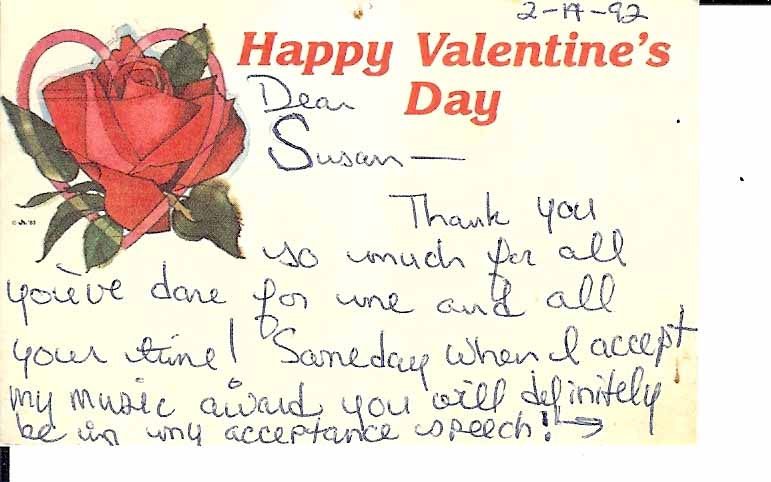 2-14-92
Happy Valentine's
Day
Dear
Susan —
Thank you
so much for all
you've done for me and all
your time! Someday when I accept
my music award you will definitely
be in my acceptance speech! →